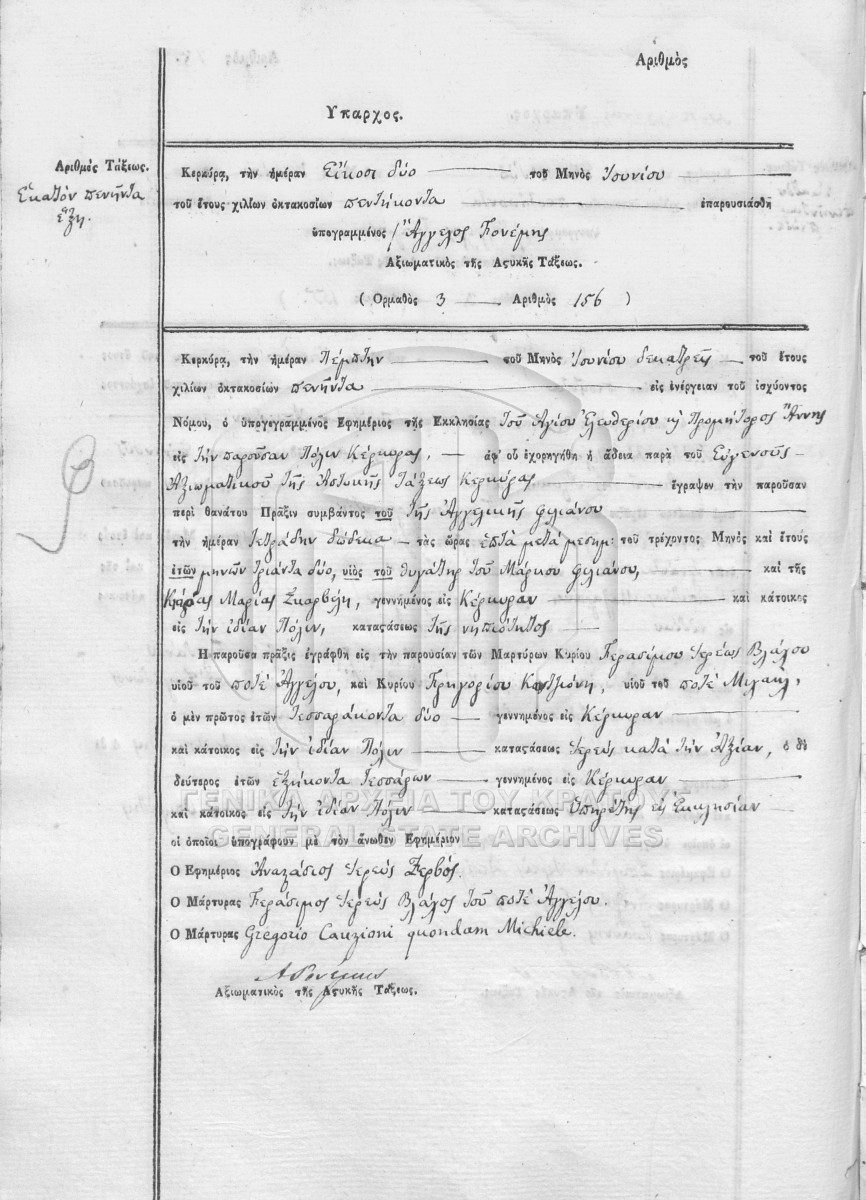 Αριθμὸς
Υπαρχος.
Αριθμὸς Τάξεως.
Ἑκατὸν πενῆντα
ἕξη.
Κερκύρᾳ, τὴν ἡμέραν Εἴκοσι δύο τοῦ Μηνὸς Ἰουνίου
τοῦ ἔτους χιλίων ὀκτακοσίων πεντήκοντα ἐπαρουσιάσθη
ὑπογραμμένος Ἄγγελος
Αξιωματικὸς τῆς Αστυκῆς Τάξεως.
( Ορμαθὸς 3 Αριθμὸς 156 )
Κερκύρᾳ, τὴν ἡμέραν Πέμπτην τοῦ Μηνὸς Ἰουνίου δεκατρεῖς τοῦ ἔτους
χιλίων ὀκτακοσίων πενῆντα εἰς ἐνέργειαν τοῦ ἰσχύοντος
Νόμου, ὁ ὑπογεγραμμένος Εφημέριος τῆς Εκκλησίας τοῦ Ἁγίου Ἐλευθερίου καὶ Προμήτορος Ἄννης
εἰς τὴν παροῦσαν Πόλιν Κέρκυρας, ἀφ' οὗ ἐχορηγήθη ἡ ἄδεια παρὰ τοῦ Εὐγενοῦς
Ἀξιωματικοῦ τῆς Ἀστυκῆς Τάξεως Κερκύρας ἔγραψεν τὴν παροῦσαν
περὶ θανάτου Πρᾶξιν συμβάντος τοῦ τῆς Ἀγγελικῆς Φιλιάνου
τὴν ἡμέραν Τετράδην δώδεκα τὰς ὥρας ἑπτὰ μετὰ μεσημ: τοῦ τρέχοντος Μηνὸς καὶ ἔτους
ἐτῶν μηνῶν τριάντα δύο, υἱὸς τοῦ θυγάτηρ τοῦ Μάρκου Φιλιάνου, καὶ τῆς
Κυρίας Μαρίας Σκαρβέλη, γεννημένος εἰς Κέρκυραν καὶ κάτοικος
εἰς τὴν ἰδίαν Πόλιν, καταςάσεως τῆς νηπιότητος
Η παροῦσα πρᾶξις ἐγράφθη εἰς τὴν παρουσίαν τῶν Μαρτύρων Κυρίου Γερασίμου Ἱερέως Βλάχου
υἱοῦ τοῦ ποτὲ Ἀγγέλου, καὶ Κυρίου Γρηγορίου Καντζιόνη, υἱοῦ τοῦ ποτὲ Μιχαὴλ,
ὁ μὲν πρῶτος ἐτῶν τεσσαράκοντα δύο γεννημένος εἰς Κέρκυραν
καὶ κάτοικος εἰς τὴν ἰδίαν Πόλιν καταςάσεως Ἱερεὺς κατὰ τὴν ἀξίαν, ὁ δὲ
δεύτερος ἐτῶν ἑξήκοντα τεσσάρων γεννημένος εἰς Κέρκυραν
καὶ κάτοικος εἰς τὴν ἰδίαν Πόλιν καταςάσεως Ὑπηρέτης εἰς Ἐκκλησίαν
οἱ ὁποῖοι ὑπογράφουν μὲ τὸν ἄνωθεν Εφημέριον
Ο Εφημέριος Ἀναστάσιος Ἱερεὺς Ζερβός.
Ο Μάρτυρας Γεράσιμος Ἱερεὺς Βλάχος τοῦ ποτὲ Ἀγγέλου.
Ο Μάρτυρας Gregorio Cauzioni quondam Michiele.
Αξιωματικὸς τῆς Αστυκῆς Τάξεως.
ΓΕΝΙΚΑ ΑΡΧΕΙΑ ΤΟΥ ΚΡΑΤΟΥΣ
GENERAL STATE ARCHIVES